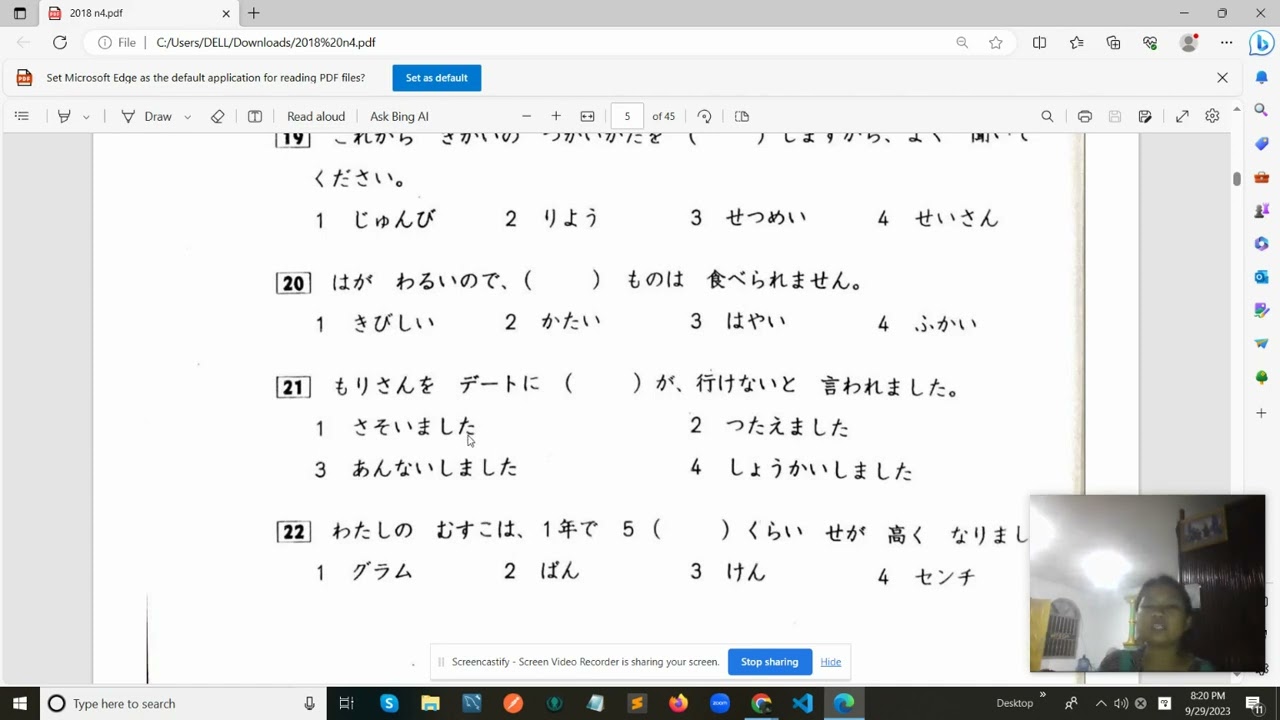 2018 n4.pdf
File
C:/Users/DELL/Downloads/2018%20n4.pdf
Set Microsoft Edge as the default application for reading PDF files?
Set as default
Draw
Read aloud
Ask Bing AI
5
of 45
19 これから きかいの つかいかたを ( ) しますから、よく 聞いて
ください。
1 じゅんび 2 りよう 3 せつめい 4 せいさん
20 はが わるいので、( ) ものは 食べられません。
1 きびしい 2 かたい 3 はやい 4 ふかい
21 もりさんを デートに ( ) が、行けないと 言われました。
1 さそいました 2 つたえました
3 あんないしました 4 しょうかいしました
22 わたしの むすこは、1年で 5 ( ) くらい せが 高く なりまし
1 グラム 2 ばん 3 けん 4 センチ
Screencastify - Screen Video Recorder is sharing your screen.
Stop sharing
Hide
Type here to search
Desktop
8:20 PM
9/29/2023
11